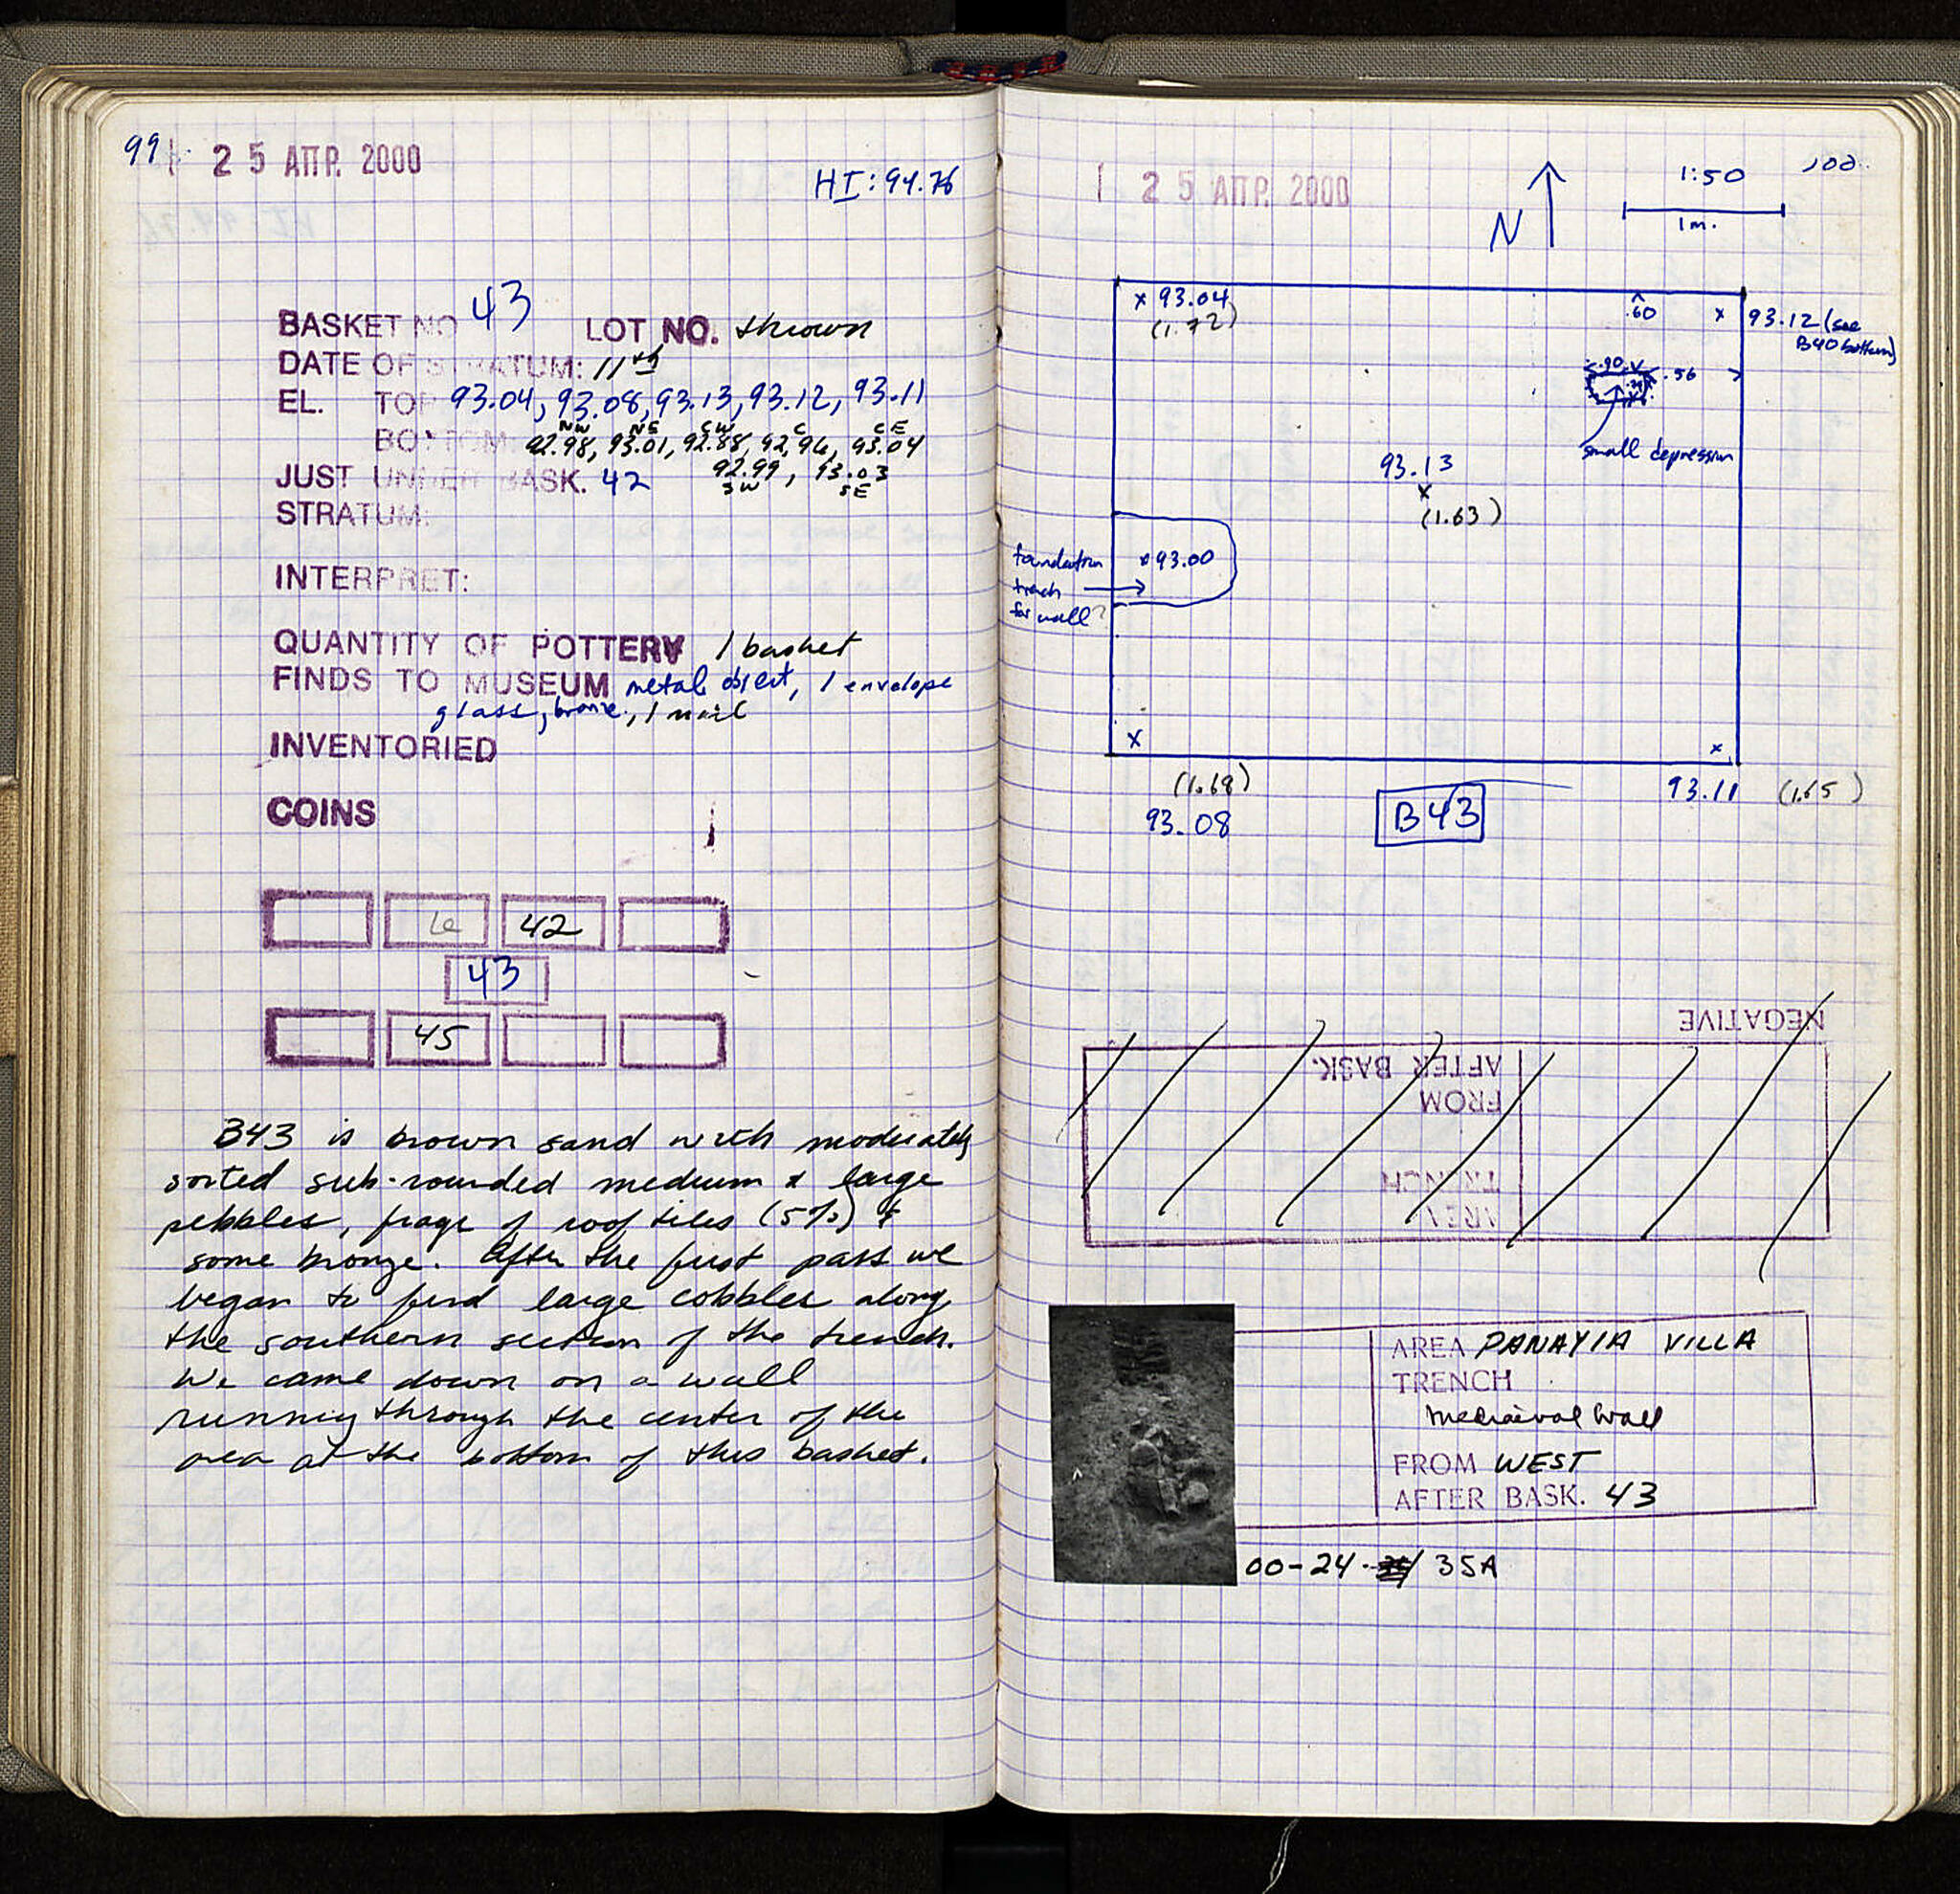 99
25 ΑΠΡ. 2000
HI: 94.76
BASKET NO 43 LOT NO. thrown
DATE OF STRATUM: 11th
EL. TOP 93.04, 93.08, 93.13, 93.12, 93.11
NW NE CW C CE
BOTTOM: 92.98, 93.01, 92.88, 92.96, 93.04
JUST UNDER BASK. 42 92.99, 93.03
SW SE
STRATUM:
INTERPRET:
QUANTITY OF POTTERY 1 basket
FINDS TO MUSEUM metal object, 1 envelope
glass, bronze, 1 nail
INVENTORIED
COINS
42
43
45
B43 is brown sand with moderately
sorted sub-rounded medium & large
pebbles, frags of roof tiles (5%) &
some bronze. After the first pass we
began to find large cobbles along
the southern section of the trench.
We came down on a wall
running through the center of the
area at the bottom of this basket.
100
25 ΑΠΡ. 2000
N
1:50
1m.
x 93.04
(1.72)
.60
x 93.12 (see
B40 bottom)
.90
.56
small depression
93.13
x
(1.63)
foundation
trench
for wall?
x 93.00
x
x
(1.68)
93.08
B43
93.11 (1.65)
NEGATIVE
AFTER BASK.
FROM
TRENCH
AREA
AREA PANAYIA VILLA
TRENCH
Mediaeval Wall
FROM WEST
AFTER BASK. 43
00-24- 35A